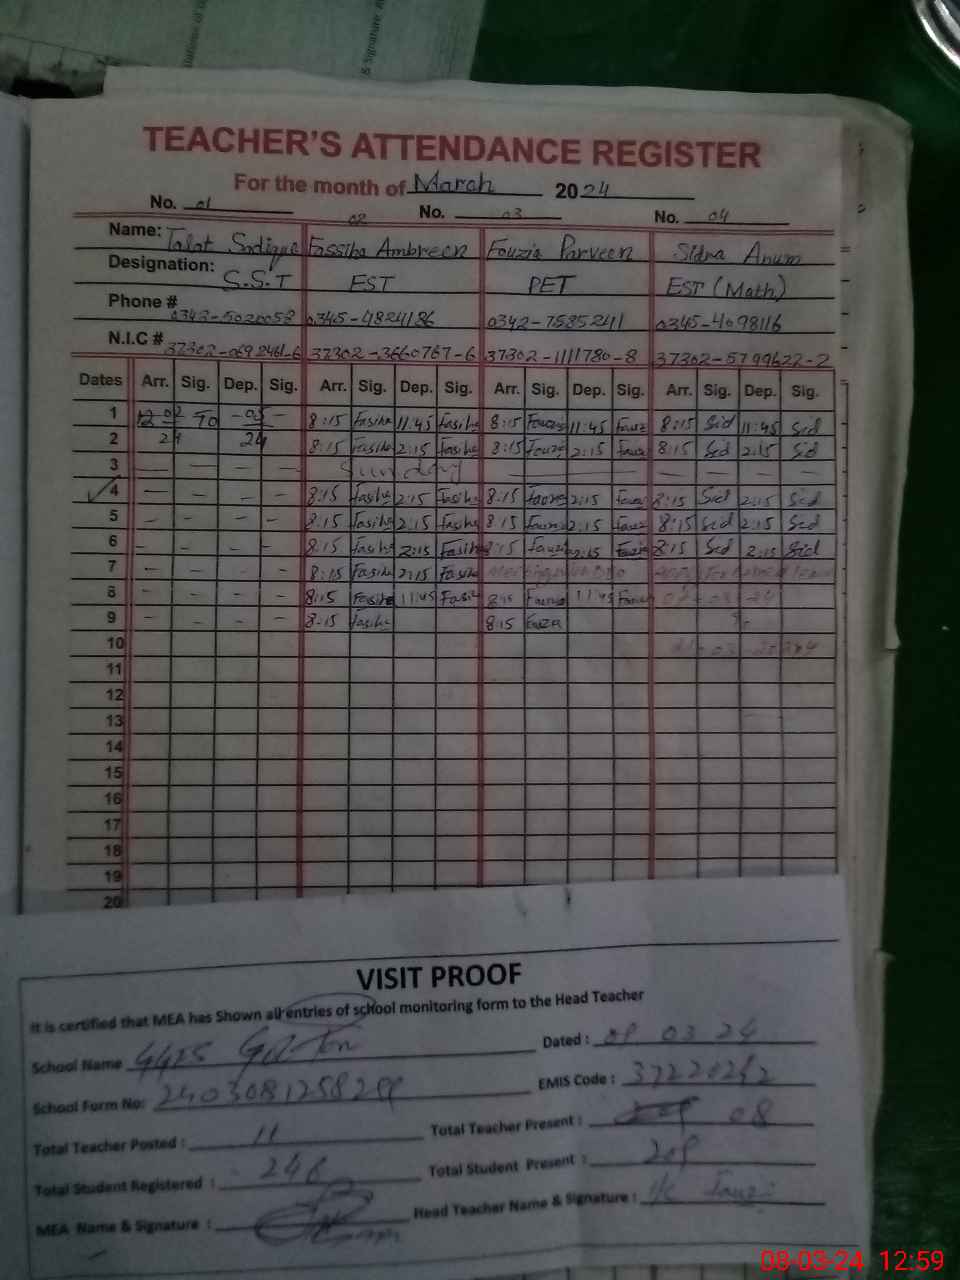 & Signature
TEACHER'S ATTENDANCE REGISTER
For the month of March 2024
No. 01 02 No. 03 No. 04
Name: Talat Sadique Fassiha Ambreen Fouzia Parveen Sidra Anum
Designation: S.S.T EST PET EST (Math)
Phone # 0343-5020058 0345-4824186 0342-7585241 0345-4098116
N.I.C # 37302-0692461-6 37302-3660767-6 37302-1111780-8 37302-5799622-2
Dates Arr. Sig. Dep. Sig. Arr. Sig. Dep. Sig. Arr. Sig. Dep. Sig. Arr. Sig. Dep. Sig.
1 To 8:15 Fasiha 11:45 Fasiha 8:15 Fouzia 11:45 Fouz 8:15 Sid 11:45 Sid
2 24 24 8:15 Fasiha 2:15 Fasiha 8:15 Fouzia 2:15 Fouz 8:15 Sid 2:15 Sid
3 — — — — Sunday — — — — — — — —
4 — — — — 8:15 Fasiha 2:15 Fasiha 8:15 Fouzia 2:15 Fouzi 8:15 Sid 2:15 Sid
5 — — — — 8:15 Fasiha 2:15 Fasiha 8:15 Fouzi 2:15 Fouz 8:15 Sid 2:15 Sid
6 — — — — 8:15 Fasiha 2:15 Fasiha 8:15 Fouzi 2:15 Fouzia 8:15 Sid 2:15 Sid
7 — — — — 8:15 Fasiha 2:15 Fasiha Meeting
8 — — — — 8:15 Fasiha 11:45 Fasiha 8:15 Fouzia 11:45 Fouzia 24
9 — — — — 8:15 Fasiha 8:15 Fouzia
10
11
12
13
14
15
16
17
18
19
20
VISIT PROOF
It is certified that MEA has Shown all entries of school monitoring form to the Head Teacher
School Name Dated : 08 03 24
School Form No: EMIS Code :
Total Teacher Posted : 11 Total Teacher Present : 08
Total Student Registered : 246 Total Student Present :
MEA Name & Signature : Head Teacher Name & Signature : I/C Fouzi
08-03-24 12:59